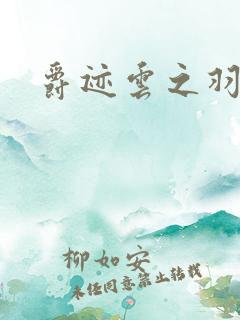 爵迹雲之羽
柳如安
未经同意禁止转载